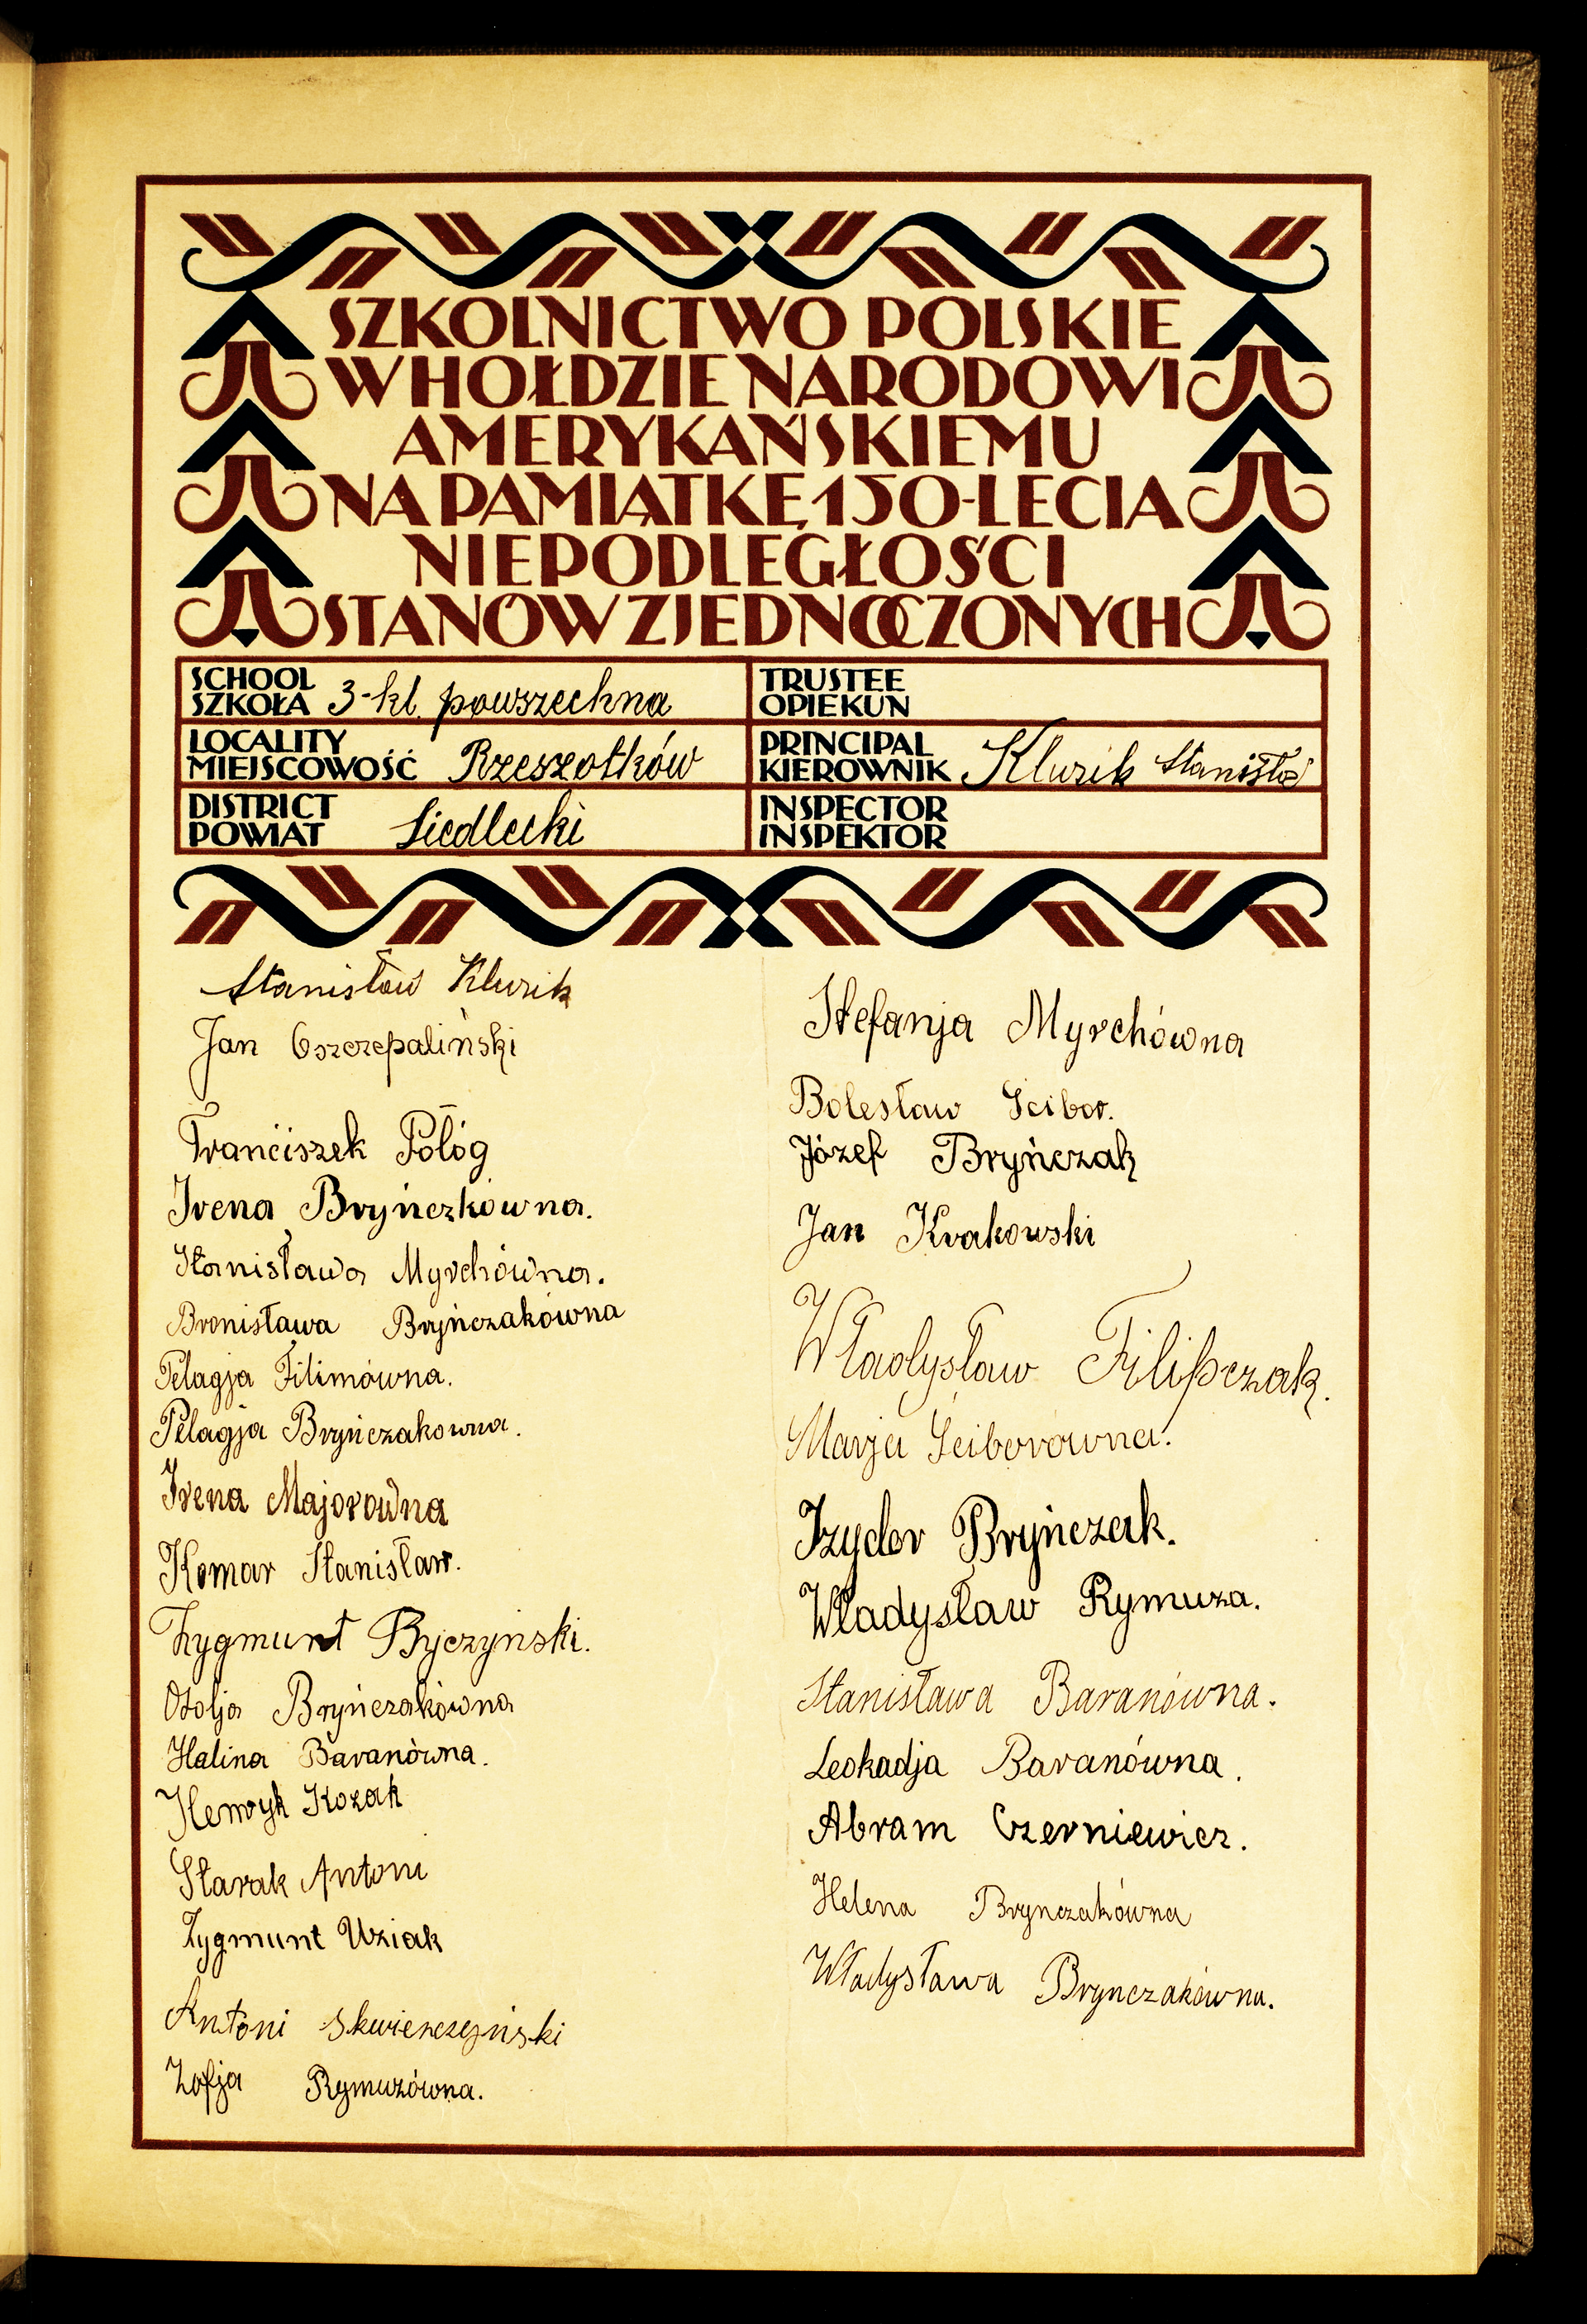 SZKOLNICTWO POLSKIE
W HOŁDZIE NARODOWI
AMERYKAŃSKIEMU
NA PAMIĄTKĘ 150-LECIA
NIEPODLEGŁOŚCI
STANÓW ZJEDNOCZONYCH
SCHOOL
SZKOŁA 3-kl. powszechna
TRUSTEE
OPIEKUN
LOCALITY
MIEJSCOWOŚĆ Rzeszotków
PRINCIPAL
KIEROWNIK Kluzik Stanisław
DISTRICT
POWIAT Siedlecki
INSPECTOR
INSPEKTOR
Stanisław Kluzik
Jan Oszczepaliński
Franciszek Połóg
Irena Bryńczkówna.
Stanisława Myrchówna.
Bronisława Bryńczakówna
Pelagja Filimówna.
Pelagja Bryńczakowna.
Irena Majorówna
Komar Stanisław.
Zygmunt Byczynski.
Otolja Bryńczakówna
Halina Baranówna.
Henryk Kozak
Starak Antoni
Zygmunt Uziak
Antoni Skwierczyński
Zofja Rymuzówna.
Stefanja Myrchówna
Bolesław Scibor.
Józef Bryńczak
Jan Krakowski
Władysław Filipczak.
Marja Sciborówna.
Izydor Bryńczak.
Władysław Rymuza.
Stanisława Baranówna.
Leokadja Baranówna.
Abram Czerniewicz.
Helena Brynczakówna
Władysława Brynczakówna.